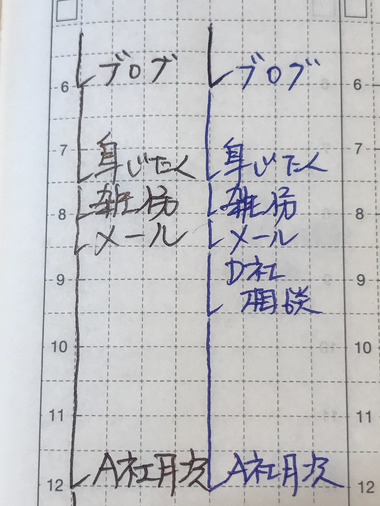 6 ブログ ブログ 6
7 身じたく 身じたく 7
8 雑務 雑務 8
メール メール
9 D社 9
相談
10
11
12 A社月次 A社月次 12